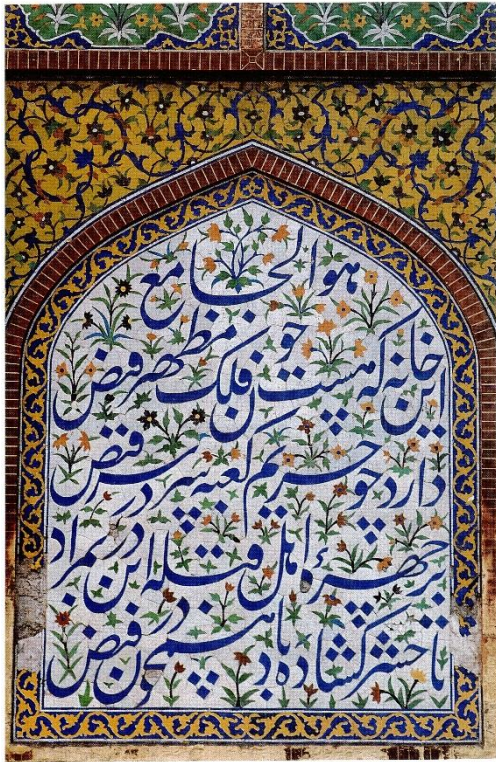 هوالجامع
این خانه که هست چون فلک مظهر فیض
دارد چو حریم کعبه در فیض
بر چهرهٔ اهل قبله این در بمراد
تا حشر کشاده باد همچون در فیض